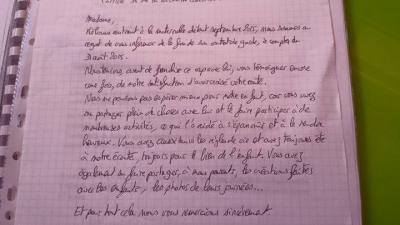 Madame,
rentrant à la maternelle début septembre 2015, nous sommes au
regret de vous informer de la fin de son contrat de garde, à compter du
31 août 2015.
Néanmoins, avant de prendre ce repos, vous témoigner encore
une fois, de notre satisfaction d'avoir
Nous ne pouvions pas espérer mieux pour notre enfant, car vous avez
su partager plein de choses avec lui et le faire participer à de
nombreuses activités, ce qui l'a aidé à s'épanouir et à le rendre
heureux. Vous avez aussi les règles de vie et avez toujours été
à notre écoute, toujours pour le bien de l'enfant. Vous avez
également su faire partager, à nous parents, les créations faites
avec les enfants, les photos de leurs journées...
Et pour tout cela nous vous remercions sincèrement.